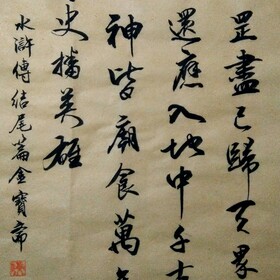 罡盡已歸天界
還應入地中千古
神皆廟食萬
史播英雄
水滸傳結尾篇金寶齋